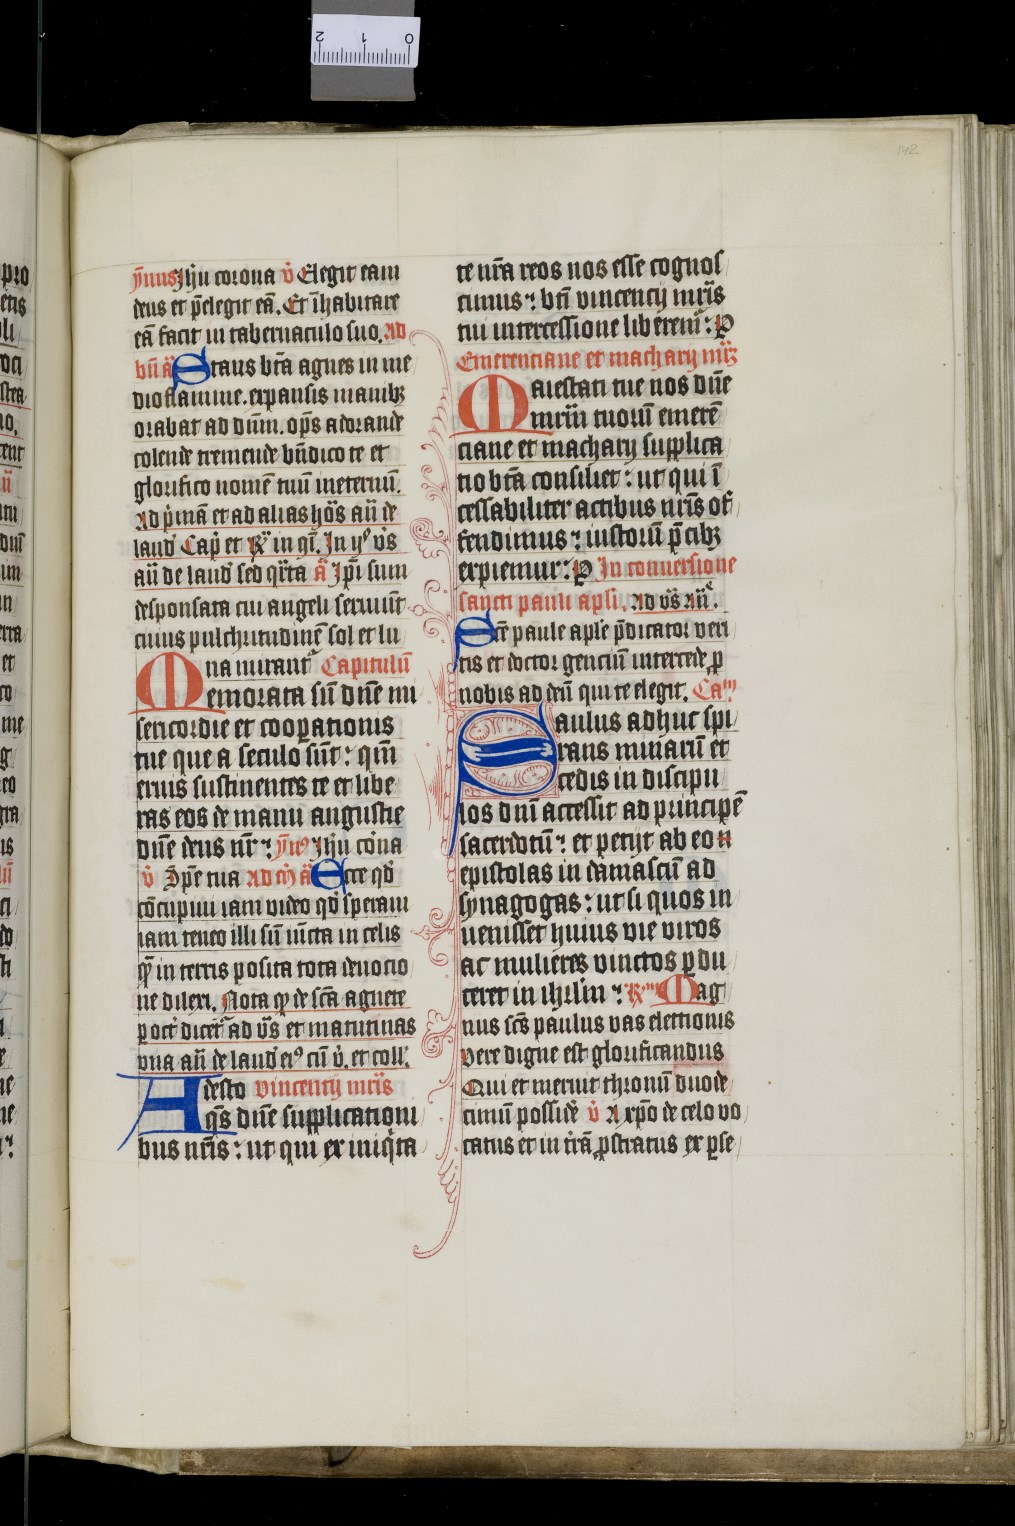 142
ỹnus Jhũ corona v̾ Elegit eam
deus et p̃elegit eã. Et ĩhabitare
eã facit in tabernaculo suo. ad
bñ ã Stans bt̃a agnes in me
dio flamme. expansis manibꝫ
orabat ad dñm. op̃s adorande
colende tremende bñdico te et
glorifico nomẽ tuũ ineternũ.
Ad p̾mã et ad alias hõs añ de
laud̾ Cap̾ et ℟ in qĩ. Jn ijº v̾s
añ de laud̾ sed qr̾ta ã Jp̃i sum
desponsata cui angeli seruiũt
cuius pulchritudinẽ sol et lu
na mirant᷑ Capitulũ
Memorata sũ dñe mi
sericordie et coop̲ationis
tue que a seculo sũt : qm̃
eruis sustinentes te et libe
ras eos de manu angustie
dñe deus nr̃ : ỹnꝰ Jhũ cõna
v̾ Sp̃e tua ad m̃ ã Ecce qd̾
cõcupiui iam video qd̾ speraui
iam teneo illi sũ iũcta in celis
quẽ in terris posita tota deuotio
ne dilexi. Nota ꝙ de scã agnete
p̲ oct̾ dicet᷑ ad v̾s et matutinas
vna añ de laud̾ eiꝰ cũ v̾. et coll̾.
Adesto vincentij mr̃is
q̃s dñe supplicationi
bus nr̃is : ut qui ex iniq̾ta
te nr̃a reos nos esse cognos
cimus : bt̃i vincentij mr̃is
tui intercessione liberem᷑ : P
Emerentiane et macharij mr̃ꝝ
Maiestati tue nos dñe
mr̃iũ tuoꝝ emerẽ
ciane et macharij supplica
tio bt̃a consiliet : ut qui ĩ
cessabiliter actibus nr̃is of
fendimus : iustorũ p̃cibꝫ
expiemur : P Jn conuersione
sancti pauli apl̃i. ad v̾s añ.
Scẽ paule aple p̃dicator veri
tis et doctor genciũ intercede p̲
nobis ad deũ qui te elegit. Caᵐ
Saulus adhuc spi
rans minarũ et
cedis in discipu
los dnĩ accessit ad principẽ
sacerdotũ : et petijt ab eo
epistolas in damascũ ad
synagogas : ut si quos in
uenisset huius vie viros
ac mulieres vinctos p̲du
ceret in ihrl̃m : ℟ᵐ Mag
nus scs̃ paulus vas elettionis
vere digne est glorificandus
Qui et meruit thronũ duode
cimũ possidẽ v̾ A xp̃o de celo vo
catus et in tr̃ã p̲stratus ex p̲se